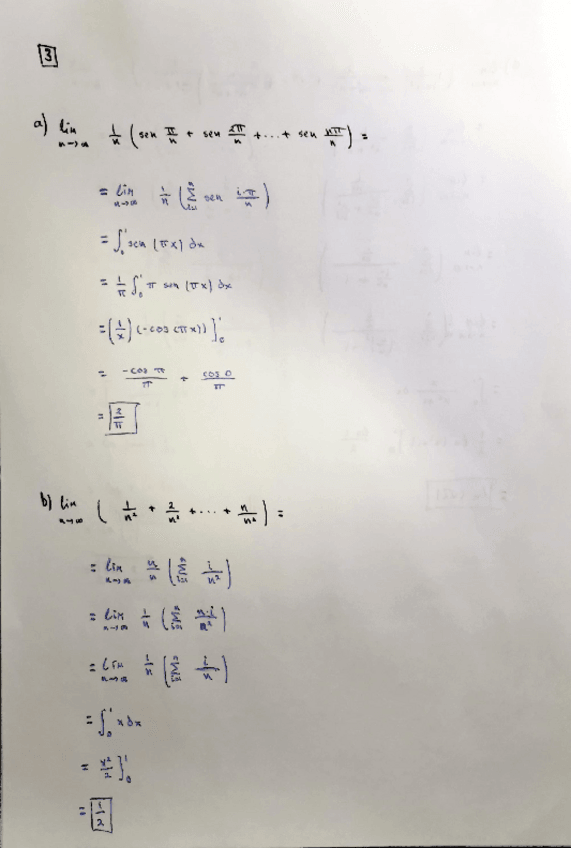 3
a) lim n→∞ 1/n (sen π/n + sen 2π/n + ... + sen nπ/n) =
= lim n→∞ 1/n (∑ i=1 n sen i·π/n)
= ∫₀¹ sen (πx) dx
= 1/π ∫₀¹ π sen (πx) dx
= (1/π) (-cos (πx)) ]₀¹
= -cos π/π + cos 0/π
= 2/π
b) lim n→∞ (1/n² + 2/n² + ... + n/n²) =
= lim n→∞ n/n (∑ i=1 n i/n²)
= lim n→∞ 1/n (∑ i=1 n n·i/n²)
= lim n→∞ 1/n (∑ i=1 n i/n)
= ∫₀¹ x dx
= x²/2 ]₀¹
= 1/2